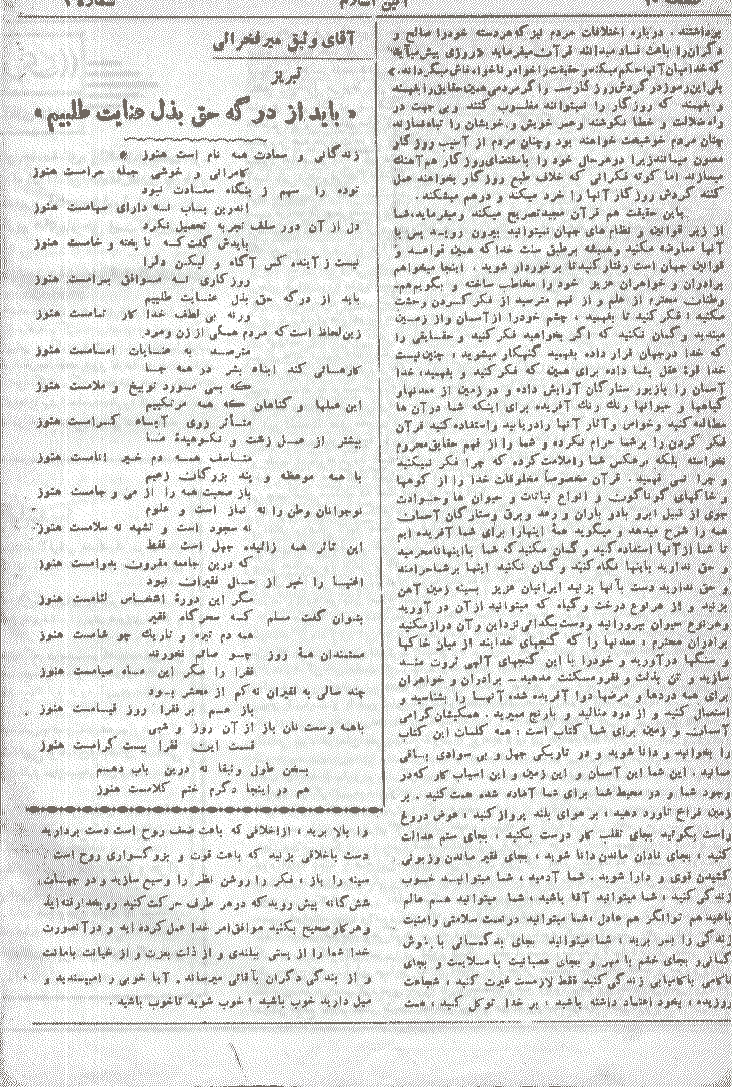 آئین اسلام
برداشتند ، درباره اختلافات مردم نیز که هر دسته خودرا صالح و
دگران را باعث فساد میدانند قرآن میفرماید «روزی پیش میآید
که خدا میان آنها حکم میکند و حقیقت را خواه و ناخواه فاش میگرداند.»
بلی این رموز در گردش روزگار ست را گر مردمی همین حقایق را بفهمند
و بفهمند که روزگار را نمیتوانند مغلوب کنند و بی جهت در
راه ضلالت و خطا نکوشند و عمر خویش و خویشان را تباه نسازند
چنان مردم خوشبخت خواهند بود و چنان مردم از آسیب روزگار
مصون میمانند زیرا در هر حال خود را با مقتضای روزگار هم آهنگ
میسازند اما کوته فکرانی که خلاف طبع روزگار بخواهند عمل
کنند گردش روزگار آنها را خرد میکند و درهم میشکند .
باین حقیقت هم قرآن مجید تصریح میکند و میفرماید، شما
از زیر قوانین و نظام های جهان نمیتوانید بیرون روید پس با
آنها معارضه مکنید و همیشه بر طبق سنت خدا که همین قواعد و
قوانین جهان است رفتار کنید تا برخوردار شوید . اینجا میخواهم
برادران و خواهران عزیز خود را مخاطب ساخته و بگویم هم‌
وطنان محترم از علم و از فهم مترسید از فکر کردن وحشت
مکنید ، فکر کنید تا بفهمید ، چشم خود را از آسمان و از زمین
مبندید و گمان نکنید که اگر بخواهید فکر کنید و حقایقی را
که خدا در جهان قرار داده بفهمید گنهکار میشوید ، چنین نیست
خدا قوهٔ عقل بشما داده برای همین که فکر کنید و بفهمید، خدا
آسمان را بازیور ستارگان آرایش داده و در زمین از معدنها و
گیاهها و حیوانها رنگ رنگ آفریده برای اینکه شما در آن ها
مطالعه کنید و خواص و آثار آنها را دریابید و استفاده کنید قرآن
فکر کردن را بر شما حرام نکرده و شما را از فهم حقایق محروم
نخواسته بلکه برعکس شما را ملامت کرده که چرا فکر نمیکنید
و چرا نمی فهمید . قرآن مخصوصاً مخلوقات خدا را از کوهها
و خاکهای گوناگون و انواع نباتات و حیوان ها و حوادث
جوی از قبیل ابر و باد و باران و رعد و برق و ستارگان آسمان
همه را شرح میدهد و میگوید همهٔ اینها را برای شما آفریده ایم
تا شما از آنها استفاده کنید و گمان مکنید که شما با اینها نامحرمید
و حق ندارید باینها نگاه کنید و گمان نکنید اینها بر شما حرامند
و حق ندارید دست بآنها بزنید ایرانیان عزیز بسینه زمین آهن
بزنید و از هر نوع درخت و گیاه که میتوانید از آن در آورید
و هر نوع حیوان بپرورانید و دست بگدائی نزد این و آن دراز مکنید
برادران محترم ، معدنها را که گنجهای خدایند از میان خاکها
و سنگها در آورید و خود را با این گنجهای آلهی ثروت مند
سازید و تن بذلت و فقر و مسکنت مدهید ـ برادران و خواهران
برای همه دردها و مرضها دوا آفریده شده آنها را بشناسید و
استعمال کنید و از درد منالید و بارنج نمیرید . همکیشان گرامی
آسمان و زمین برای شما کتاب است ، همه کلمات این کتاب
را بخوانید و دانا شوید و در تاریکی جهل و بی سوادی باقی
ممانید . این شما این آسمان و این زمین و این اسباب کار که در
وجود شما و در محیط شما برای شما آماده شده همت کنید . بر
زمین فراخ بدوید ، بر هوای بلند پرواز کنید ، عوض دروغ
راست بگوئید بجای تقلب کار درست بکنید ، بجای ستم عدالت
کنید ، بجای نادان ماندن دانا شوید ، بجای فقیر ماندن و زبونی
کشیدن قوی و دارا شوید . شما آدمید ، شما میتوانید خوب
زندگی کنید ، شما میتوانید آقا باشید ، شما میتوانید هم عالم
باشید هم توانگر هم عادل ، شما میتوانید در امت سلامتی و امنیت
زندگی را بسر برید ، شما میتوانید بجای بدگمانی با خوش
گمانی و بجای خشم با مهر و بجای عصبانیت با ملایمت و بجای
ناکامی با کامیابی زندگی کنید فقط لازمست غیرت کنید ، شجاعت
ورزیده ، بخود اعتماد داشته باشید ، بر خدا توکل کنید ، همت
آقای وثیق میرفخرائی
تبریز
« باید از درگه حق بذل عنایت طلبیم »
زندگانی و سعادت همه نام است هنوز
کامرانی و خوشی جمله حرامست هنوز
توده را سهم ز بنگاه سعادت نبود
اندرین باب نه دارای سهامست هنوز
دل از آن دور سلف تجربه تحصیل نکرد
بایدش گفت که ناپخته و خامست هنوز
نیست ز آینده کس آگاه و لیکن دلرا
روزگاری نه موافق بمرامست هنوز
باید از درگه حق بذل عنایت طلبیم
ورنه بی لطف خدا کار تمامست هنوز
زین لحاظ است که مردم همگی از زن و مرد
مترصد به عنایات امامست هنوز
کارهائی کند ابناء بشر در همه جا
که بسی مورد توبیخ و ملامست هنوز
این عملها و گناهان که همه مرتکبیم
متأثر زوی آباء کرامست هنوز
بیشتر از عمل زشت و نکوهیدهٔ ما
متأسف همه دم خیر انامست هنوز
با همه موعظه و پند بزرگان زعیم
باز صحبت همه را از می و جامست هنوز
نوجوانان وطن را نه نماز است و علوم
نه سجود است و تشهد نه سلامست هنوز
این تأثر همه زائیدهٔ جهل است فقط
که درین جامعه مقرون بدوامست هنوز
اغنیا را خبر از حال فقیران نبود
مگر این دورهٔ اشخاص لئامست هنوز
بتوان گفت مسلم که سحرگاه فقیر
همه دم تیره و تاریک چو شامست هنوز
مستمندان همهٔ روز چو صائم نخورند
فقرا را مگر این ماه صیامست هنوز
چند سالی به فقیران نه کم از محشر بود
باز هم بر فقرا روز قیامست هنوز
باهمه وسعت نان باز از آن روز و شبی
قسمت این فقرا بیست گرامست هنوز
بسخن طول وثیقا نه درین باب دهم
هم در اینجا دگرم ختم کلامست هنوز
را بالا برید ، از اخلاقی که باعث ضعف روح است دست بردارید
دست باخلاقی بزنید که باعث قوت و بزرگواری روح است
سینه را باز ، فکر را روشن نظر را وسیع سازید و در جهات
شش گانه پیش روید که در هر طرف حرکت کنید رو بخدا رفته اید
و هر کار صحیح بکنید موافق امر خدا عمل کرده اید و در آنصورت
خدا شما را از پستی ببلندی و از ذلت بعزت و از خیانت بامانت
و از بندگی دگران بآقائی میرساند . آیا خوبی را نمیپسندید و
میل دارید خوب باشید ؛ خوب شوید تا خوب باشید .